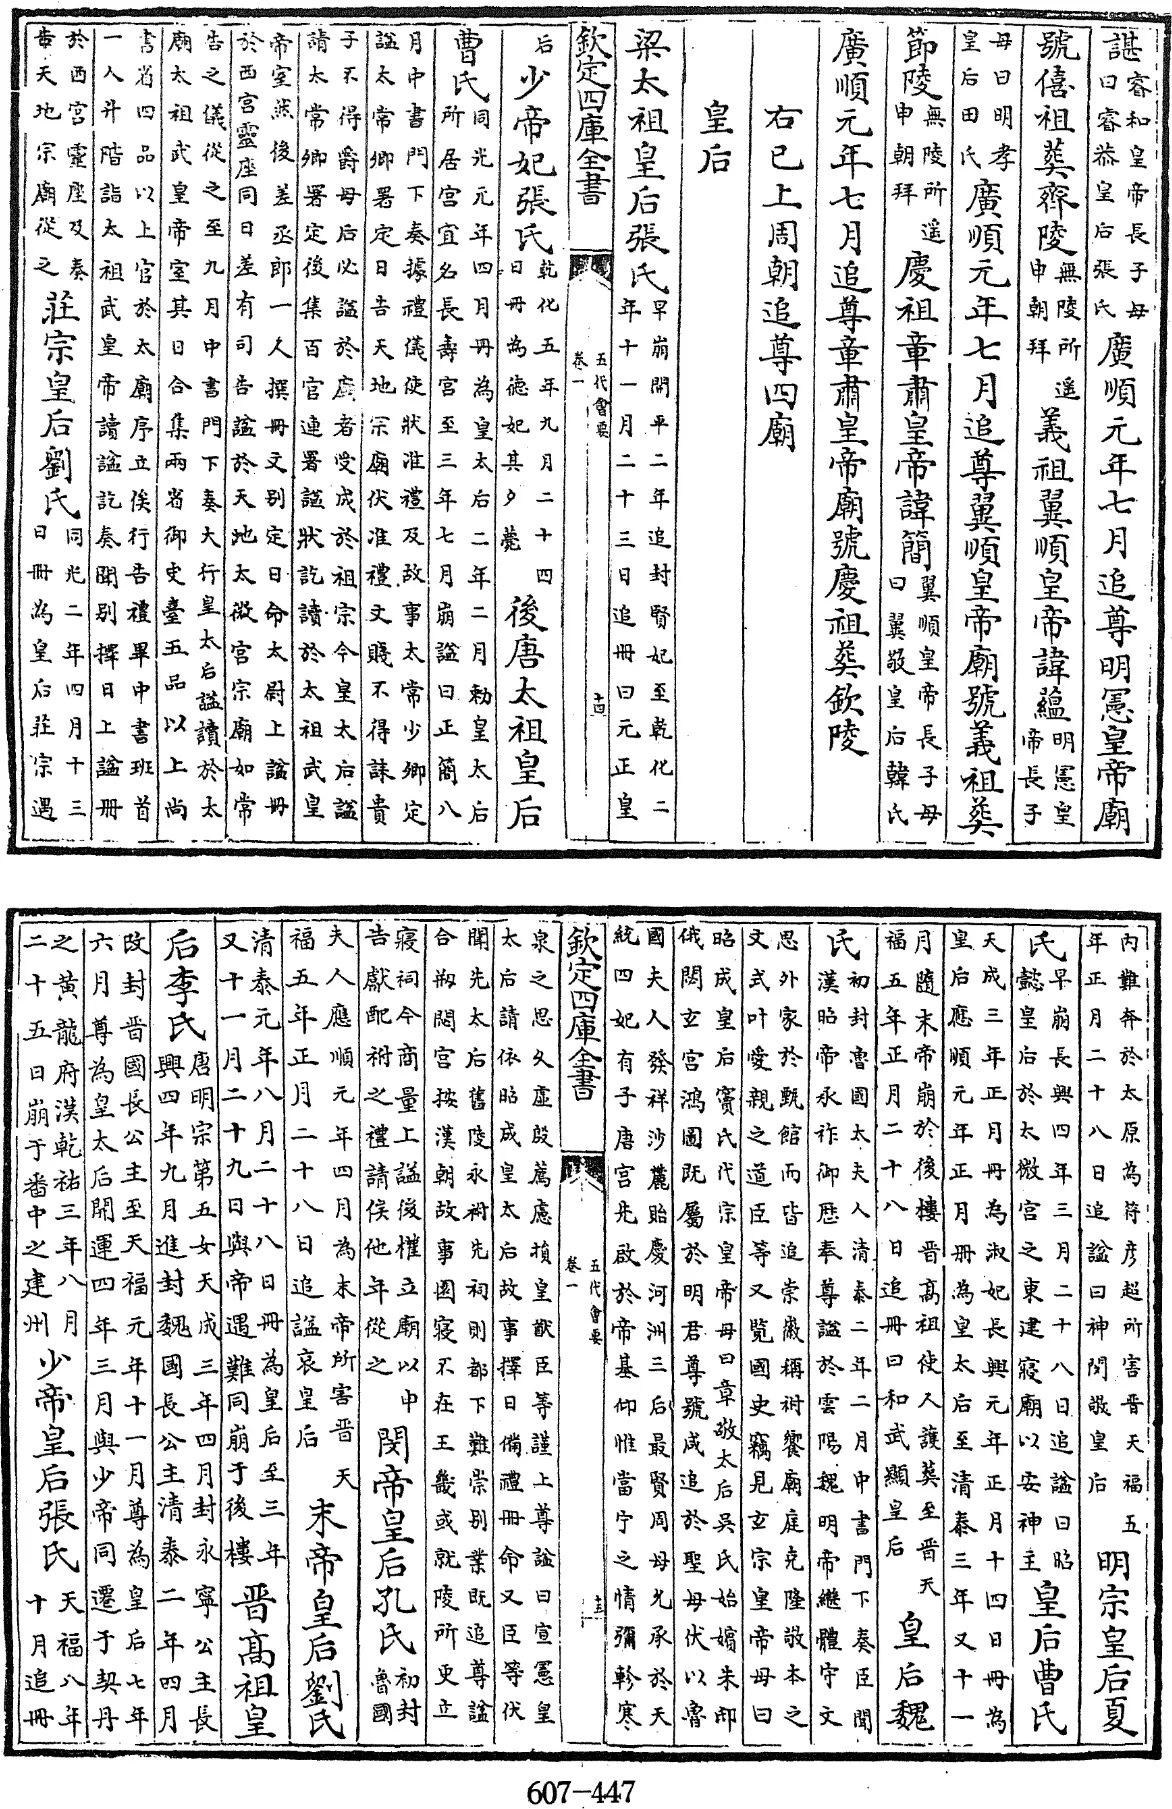 諶睿和皇帝長子母曰睿恭皇后張氏廣順元年七月追尊明憲皇帝廟
號僖祖葬齊陵無陵所遥申朝拜義祖翼順皇帝諱蘊明憲皇帝長子
母曰明孝皇后田氏廣順元年七月追尊翼順皇帝廟號義祖葬
節陵無陵所遥申朝拜慶祖章肅皇帝諱簡翼順皇帝長子母曰翼敬皇后韓氏
廣順元年七月追尊章肅皇帝廟號慶祖葬欽陵
右已上周朝追尊四廟
皇后
梁太祖皇后張氏早崩開平二年追封賢妃至乾化二年十一月二十三日追冊曰元正皇
欽定四庫全書 五代會要 卷一 十四
后少帝妃張氏乾化五年九月二十四日冊為德妃其夕薨後唐太祖皇后
曹氏同光元年四月冊為皇太后二年二月勅皇太后所居宫宜名長壽宫至三年七月崩謚曰正簡八
月中書門下奏據禮儀使狀准禮及故事太常少卿定謚太常卿署定日告天地宗廟伏准禮文賤不得誄貴
子不得爵母后必謚於廟者受成於祖宗今皇太后謚請太常卿署定後集百官連署謚狀訖讀於太祖武皇
帝室然後差丞郎一人撰冊文别定日命太尉上謚冊於西宫靈座同日差有司告謚於天地太微宫宗廟如常
告之儀從之至九月中書門下奏大行皇太后謚讀於太廟太祖武皇帝室其日合集兩省御史臺五品以上尚
書省四品以上官於太廟序立俟行告禮畢中書班首一人升階詣太祖武皇帝讀謚訖奏聞别擇日上謚冊
於西宫靈座及奏告天地宗廟從之莊宗皇后劉氏同光二年四月十三日冊為皇后莊宗遇
内難奔於太原為符彦超所害晋天福五年正月二十八日追謚曰神閔敬皇后明宗皇后夏
氏早崩長興四年三月二十八日追謚曰昭懿皇后於太微宫之東建寢廟以安神主皇后曹氏
天成三年正月冊為淑妃長興元年正月十四日冊為皇后應順元年正月冊為皇太后至清泰三年又十一
月隨末帝崩於後樓晋髙祖使人護葬至晋天福五年正月二十八日追冊曰和武顯皇后皇后魏
氏初封魯國太夫人清泰二年二月中書門下奏臣聞漢昭帝永祚御歴奉尊謚於雲陽魏明帝繼體守文
思外家於甄館而皆追崇徽稱祔饗廟庭克隆敬本之文式叶愛親之道臣等又覽國史竊見玄宗皇帝母曰
昭成皇后竇氏代宗皇帝母曰章敬太后吳氏始嬪朱邸俄閟玄宫鴻圖既屬於明君尊號咸追於聖母伏以魯
國夫人發祥沙麓貽慶河洲三后最賢周母允承於天統四妃有子唐宫先啟於帝基仰惟當宁之情彌軫寒
欽定四庫全書 五代會要 卷一 十五
泉之思久虛殷薦慮損皇猷臣等謹上尊謚曰宣憲皇太后請依昭成皇太后故事擇日備禮冊命又臣等伏
聞先太后舊陵永祔先祠則都下難崇别業既追尊謚合刱閟宫按漢朝故事園寢不在王畿或就陵所更立
寢祠今商量上謚後權立廟以申告獻配祔之禮請俟他年從之閔帝皇后孔氏初封魯國
夫人應順元年四月為末帝所害晋天福五年正月二十八日追謚哀皇后末帝皇后劉氏
清泰元年八月二十八日冊為皇后至三年又十一月二十九日與帝遇難同崩于後樓晋髙祖皇
后李氏唐明宗第五女天成三年四月封永寧公主長興四年九月進封魏國長公主清泰二年四月
改封晋國長公主至天福元年十一月尊為皇后七年六月尊為皇太后開運四年三月與少帝同遷于契丹
之黄龍府漢乾祐三年八月二十五日崩于番中之建州少帝皇后張氏天福八年十月追冊
607-447